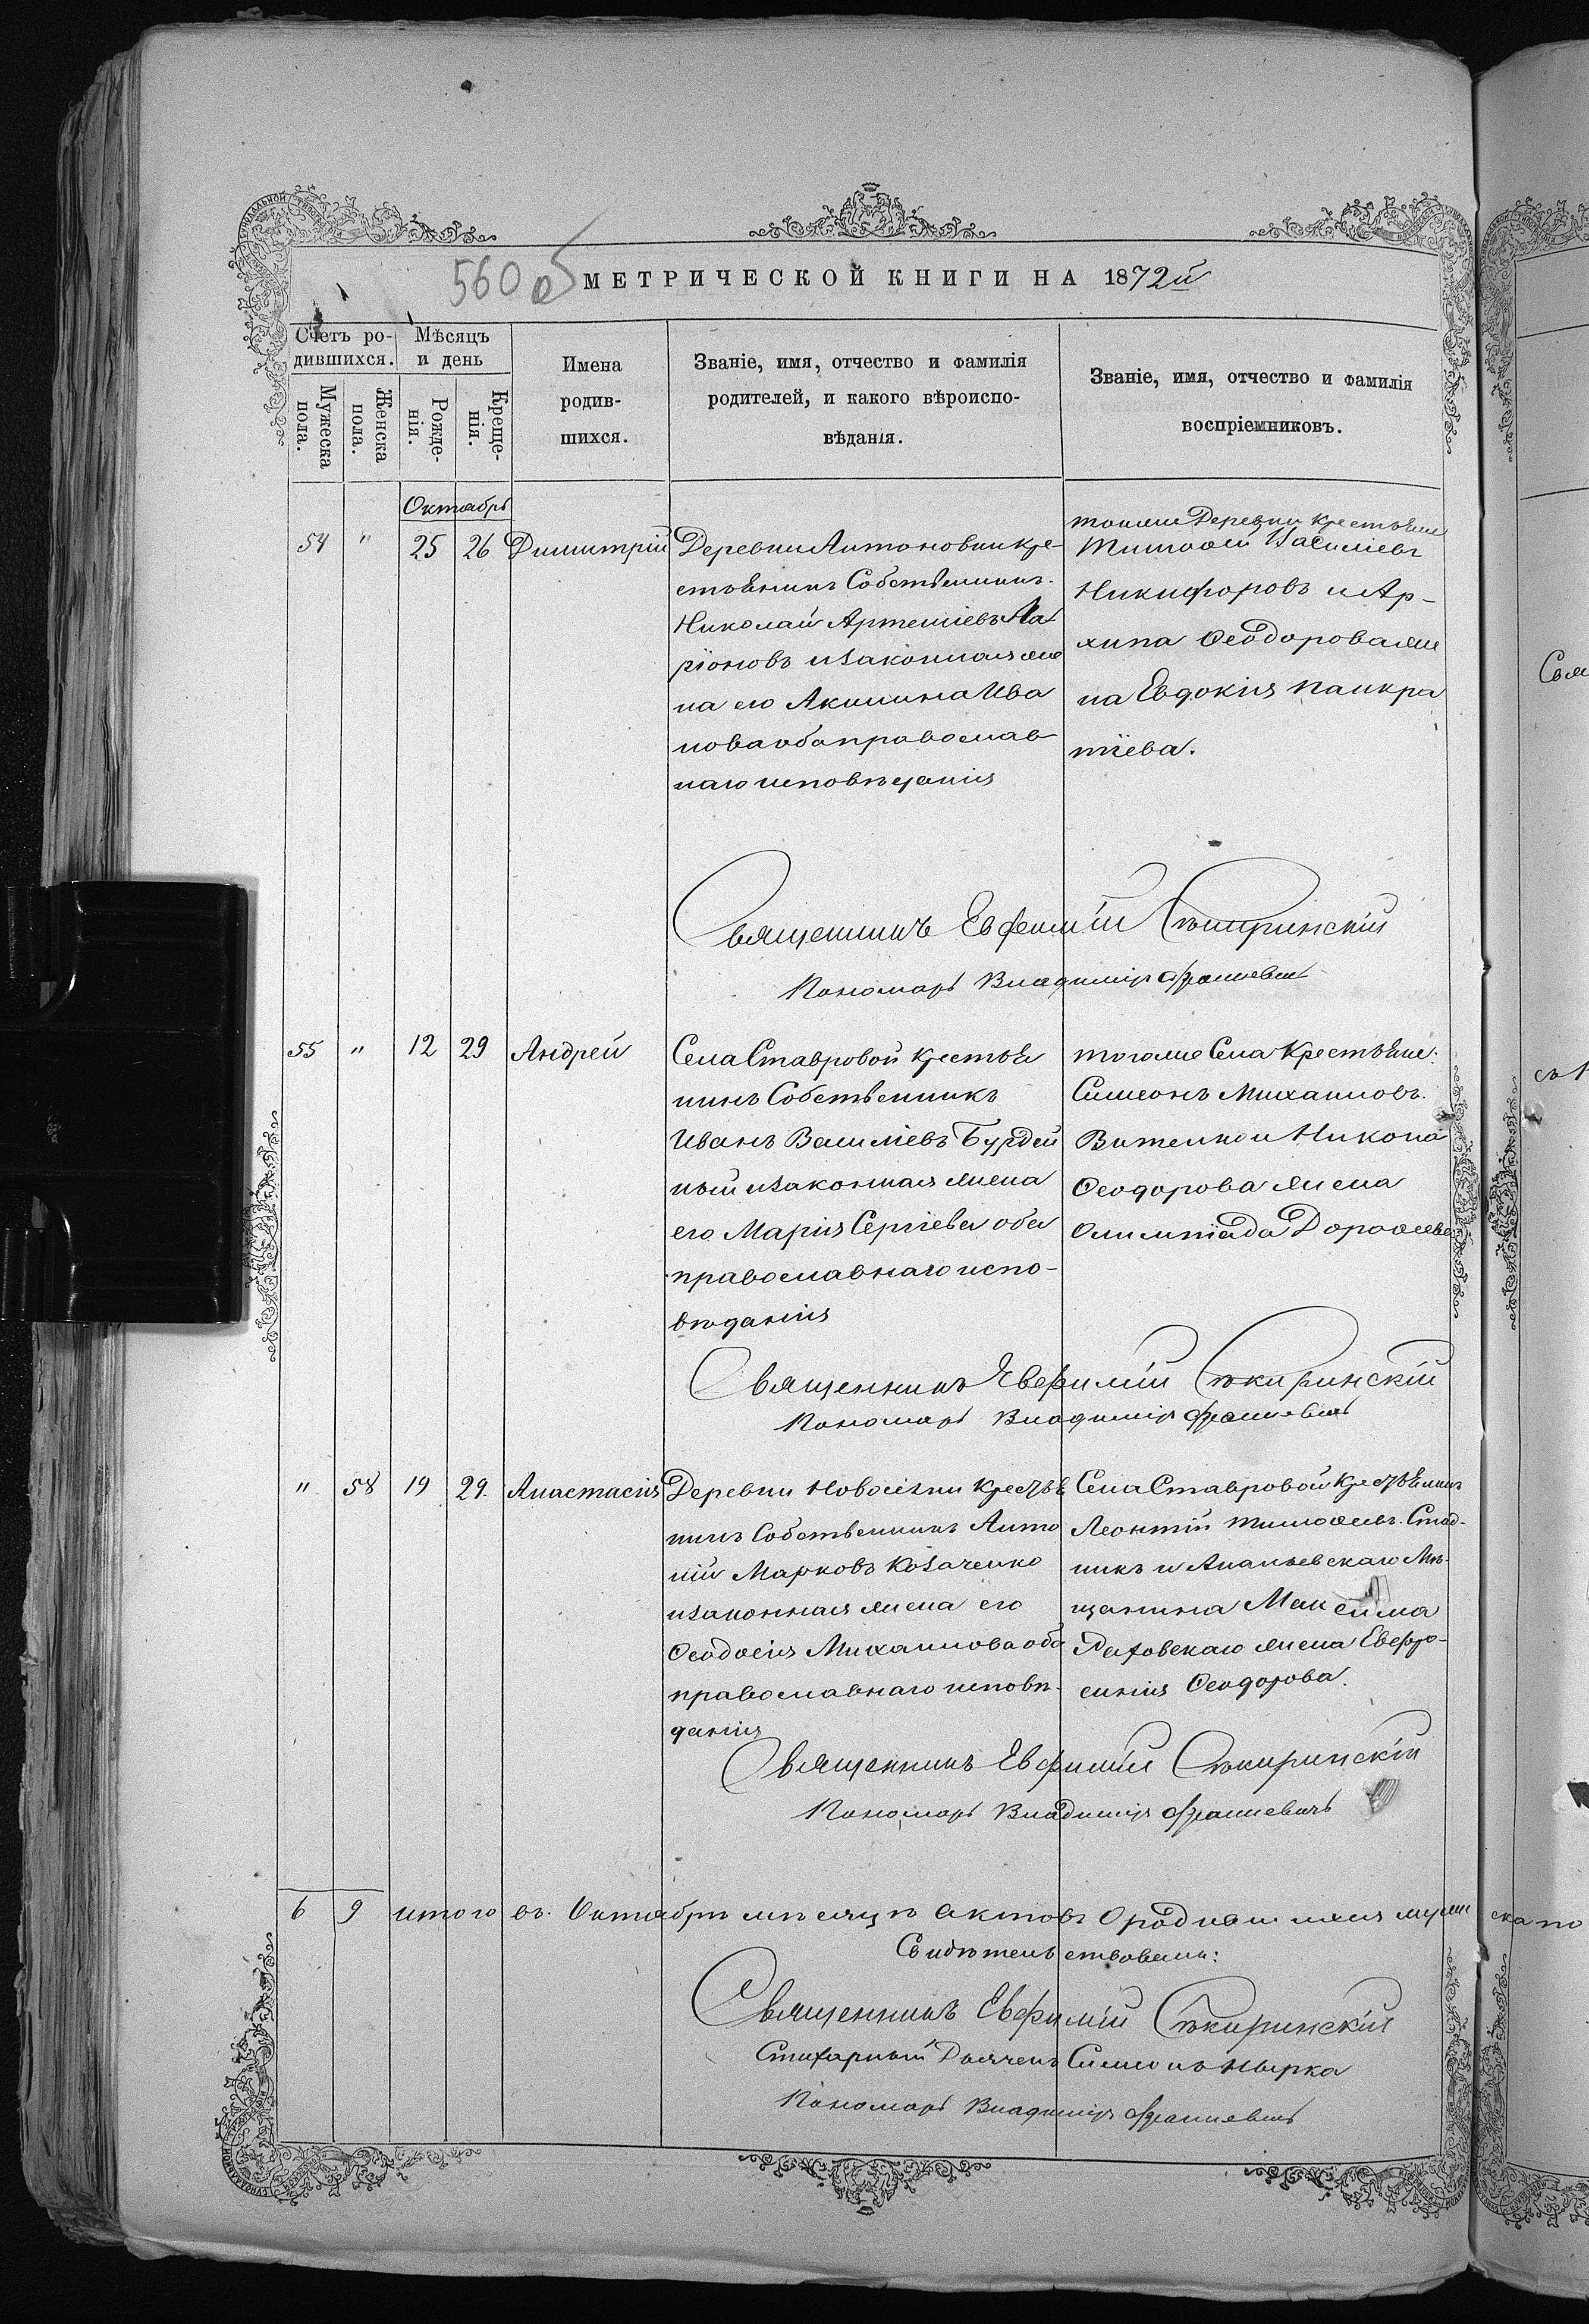 560 об
МЕТРИЧЕСКОЙ КНИГИ НА 1872й
Счетъ ро-
дившихся.
Мѣсяцъ
и день
Мужеска
пола.
Женска
пола.
Рожде-
нія.
Креще-
нія.
Имена
родив-
шихся.
Званіе, имя, отчество и фамилія
родителей, и какого вѣроиспо-
вѣданія.
Званіе, имя, отчество и фамилія
воспріемниковъ.
Октябрь
54 " 25 26 Димитрій
Деревни Антоновки кре-
стьянинъ Собственникъ
Николай Артеміевъ Ла
ріоновъ и законная же
на его Акилина Ива
нова оба православ
наго исповѣданія
тояже Деревни крестьяне
Тимоѳей Василіевъ
Никифоровъ и Ар-
хипа Ѳеодорова же
на Евдокія Панкра
тіева.
Священникъ Евфимій Сѣкиринскій
Пономарь Владиміръ
55 " 12 29 Андрей
Села Ставровой крестья
нинъ Собственникъ
Иванъ Василіевъ Бурдей
ный и законная жена
его Марія Сергіева оба
православнаго испо-
вѣданія
тогоже Села Крестьяне:
Симеонъ Михаиловъ
и Никона
Ѳеодорова жена
Олимпіада Дороѳеева
Священникъ Евфимій Сѣкиринскій
Пономарь Владиміръ
" 58 19 29 Анастасія
Деревни Новоселки крестья
нинъ Собственникъ Анто
ній Марковъ Козаченко
и законная жена его
Ѳеодосія Михаилова оба
православнаго исповѣ-
данія
Села Ставровой крестьянинъ
Леонтій Тимоѳеевъ Стад-
никъ и Ананьевскаго Мѣ-
щанина Максима
жена Евфро-
синія Ѳеодорова.
Священникъ Евфимій Сѣкиринскій
Пономарь Владиміръ
6 9 итого въ Октябрѣ мѣсяцѣ актовъ о родившихся муже
Свидѣтельствовали:
Священникъ Евфимій Сѣкиринскій
Стихарный Дьячекъ Симеонъ
Пономарь Владиміръ